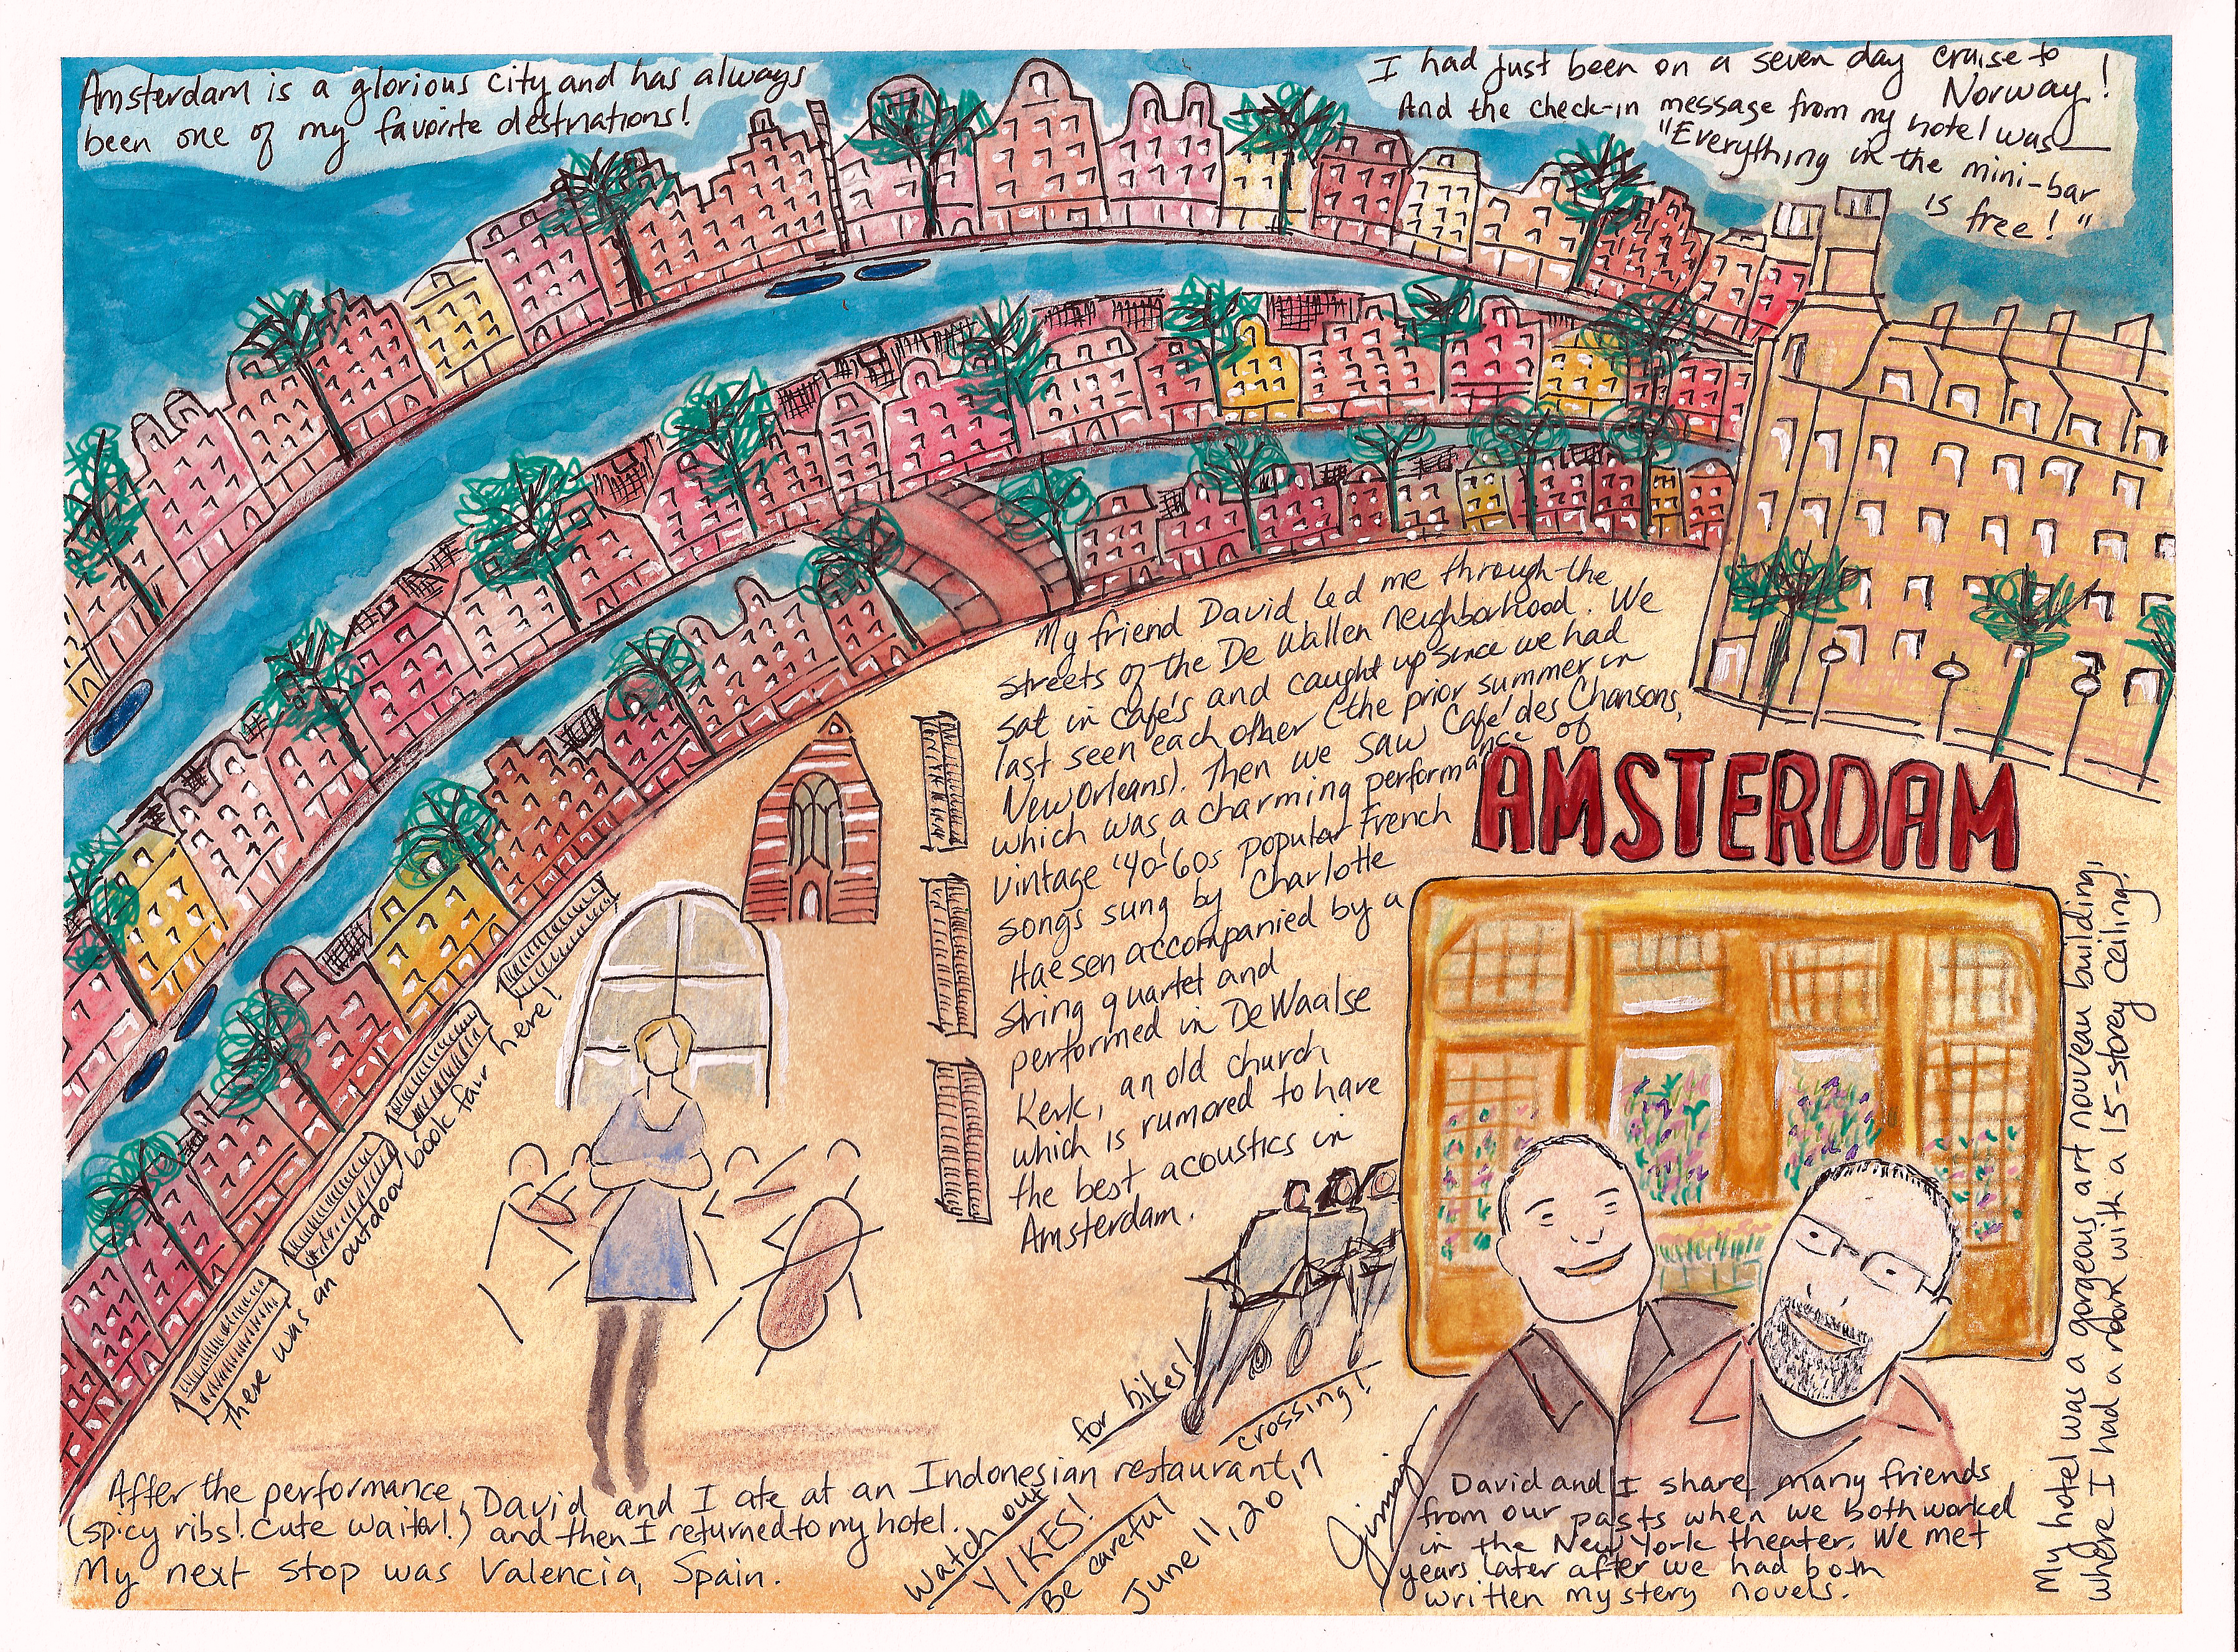 Amsterdam is a glorious city and has always
been one of my favorite destnations!
I had just been on a seven day cruise to
Norway!
And the check-in message from my hotel was—
"Everything in the mini-bar
is free!"
My friend David led me through the
streets of the De Wallen neighborhood. We
sat in cafe's and caught up since we had
last seen each other (the prior summer in
New Orleans). Then we saw Cafe' des Chansons,
which was a charming performance of
vintage '40-'60s popular French
songs sung by Charlotte
Haesen accompanied by a
string quartet and
performed in De Waalse
Kerk, an old church
which is rumored to have
the best acoustics in
Amsterdam.
AMSTERDAM
My hotel was a gorgeous art nouveau building,
where I had a room with a 15-storey ceiling!
there was an outdoor book fair here!
After the performance, David and I ate at an Indonesian restaurant,
(spicy ribs! Cute waiter!) and then I returned to my hotel.
My next stop was Valencia, Spain.
Watch out
for bikes!
YIKES!
Be careful
crossing!
June 11, 2017
Jimmie
David and I share many friends
from our pasts when we both worked
in the New York theater. We met
years later after we had both
written mystery novels.